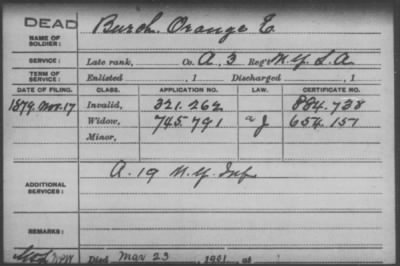 DEAD
NAME OF SOLDIER: Burch, Orange E.
SERVICE: Late rank, Co. A, 3 Reg't N.Y. L.A.
TERM OF SERVICE: Enlisted , 1 Discharged , 1
DATE OF FILING. CLASS. APPLICATION NO. LAW. CERTIFICATE NO.
1879, Nov. 17 Invalid, 321.262 884.738
Widow, 745.791 654.157
Minor,
ADDITIONAL SERVICES: A. 19 N.Y. Inf
REMARKS:
Died Mar 23, 1901, at